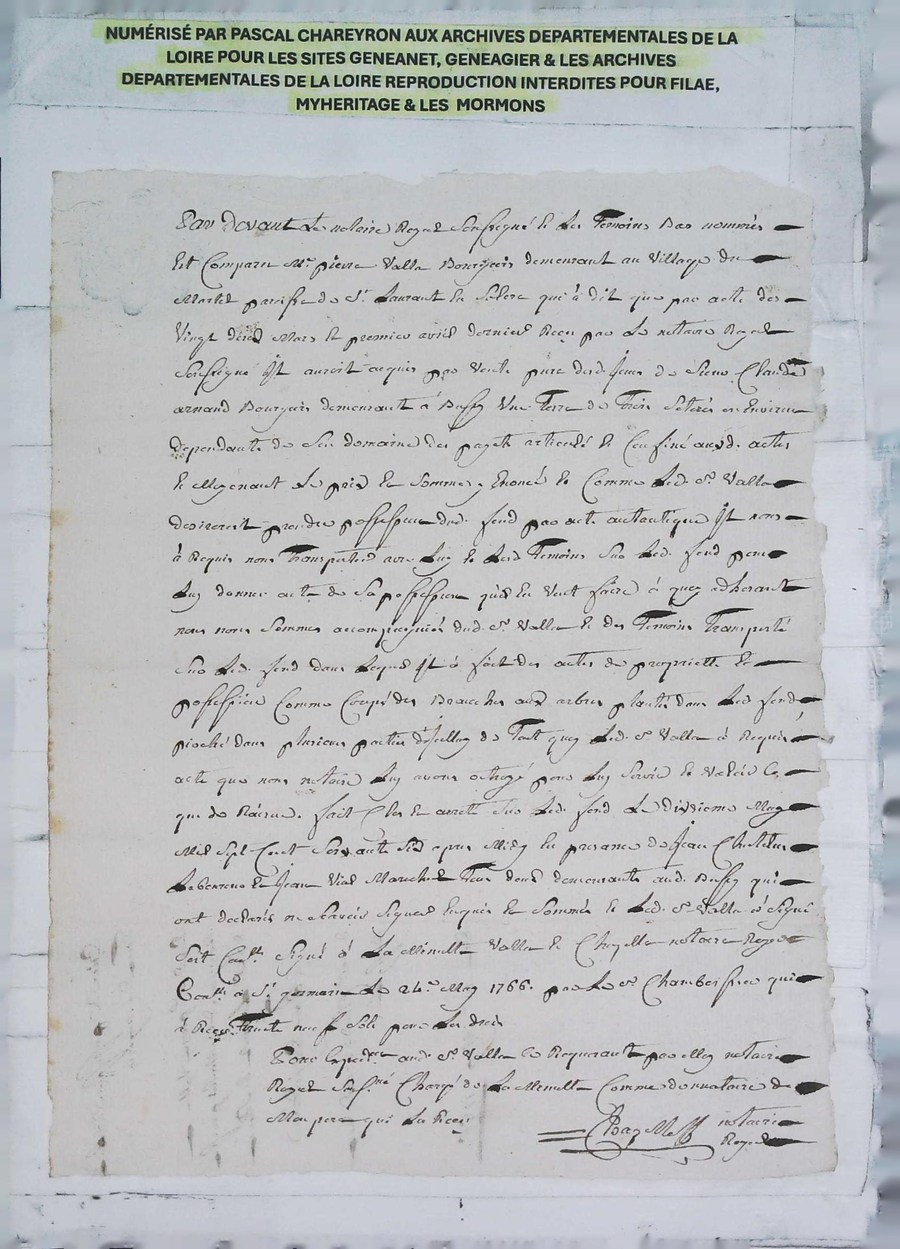 NUMÉRISÉ PAR PASCAL CHAREYRON AUX ARCHIVES DEPARTEMENTALES DE LA
LOIRE POUR LES SITES GENEANET, GENEAGIER & LES ARCHIVES
DEPARTEMENTALES DE LA LOIRE REPRODUCTION INTERDITES POUR FILAE,
MYHERITAGE & LES MORMONS
Par Devant Le notaire Royal Soussigné & Les Temoins Bas nommés
Est Comparu Mr. pierre Valla Bourgeois demeurant au Village du
Martel paroisse de St. Laurant La qui à dit que par acte des
Vingt Mars & premier avril dernier Reçu par Le notaire Royal
Soussigné Il auroit acquis par Vente pure de Sieur Claude
arnaud Bourgeois demeurant à Bussy Une Terre de Trois Seterés ou Environ
dependante de Son domaine des pagets articulé & Confiné auxd. actes
& Moyenant Le prix & Sommes y Enoncé & Comme Led. Sr. Valla
desireroit prendre possession dud. fond par acte authentique Il nous
à Requis nous Transporter avec Luy & Lesd Temoins Sur Led. fond pour
Luy donner acte de Sa possession qu'il En Veut faire à quoy adherant
nous nous Sommes accompagnés dud. Sr. Valla & des Temoins Transporté
Sur Led. fond dans Lequel Il à fait des actes de proprieté &
possession Comme Coupé des Branches aux arbres plantés dans Led fond,
pioché dans plusieurs parties d'Icelluy de Tout quoy Led. Sr. Valla à Requis
acte que nous notaire Luy avons octroyé pour Luy Servir & Valoir Ce
que de Raison. fait Clos & aresté Sur Led. fond Le Dixieme May
Mil Sept Cent Soixante Six apres Midy En presance de Jean
Laboureur & Jean Vial Marechal Tous deux demeurants aud. Bussy qui
ont declarés ne Scavoir Signer Enquis & Sommés & Led. Sr. Valla à Signé
Soit Conllé. Signé à La Minutte Valla & Chazelle notaire Royal
Conllé. a St. germain Le 24e. May 1766. par Le Sr. Chambeissieu qui
à Reçu Trente neuf Sols pour Les droits
Pour Expedon. aud. Sr. Valla Ce Requerant par Moy notaire
Royal Soussné. Chargé de La Minutte Comme donnataire de
Mon pere qui La Reçu
Chazelle notaire
Royal